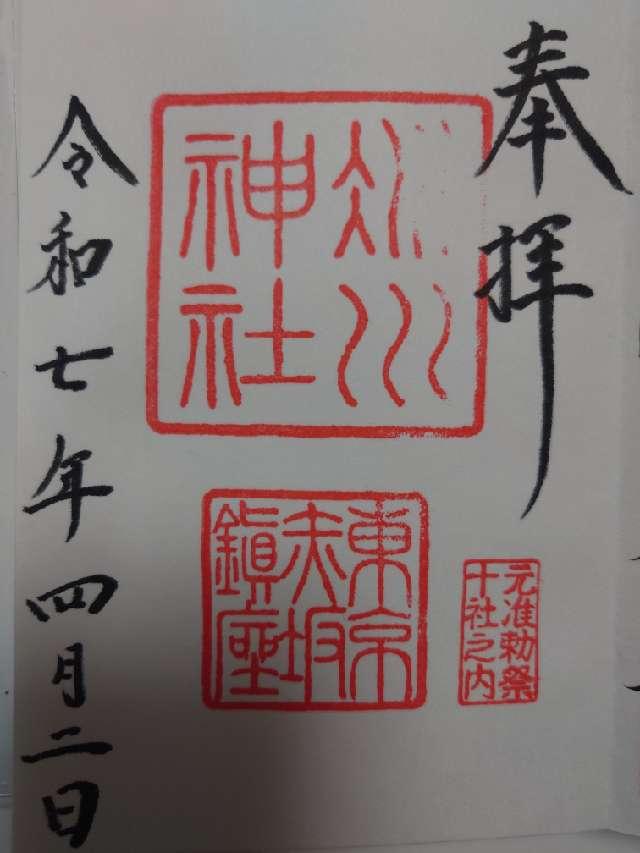 奉拝
氷川
神社
東京
赤坂
鎮座
元准勅祭
十社之内
令和七年四月二日